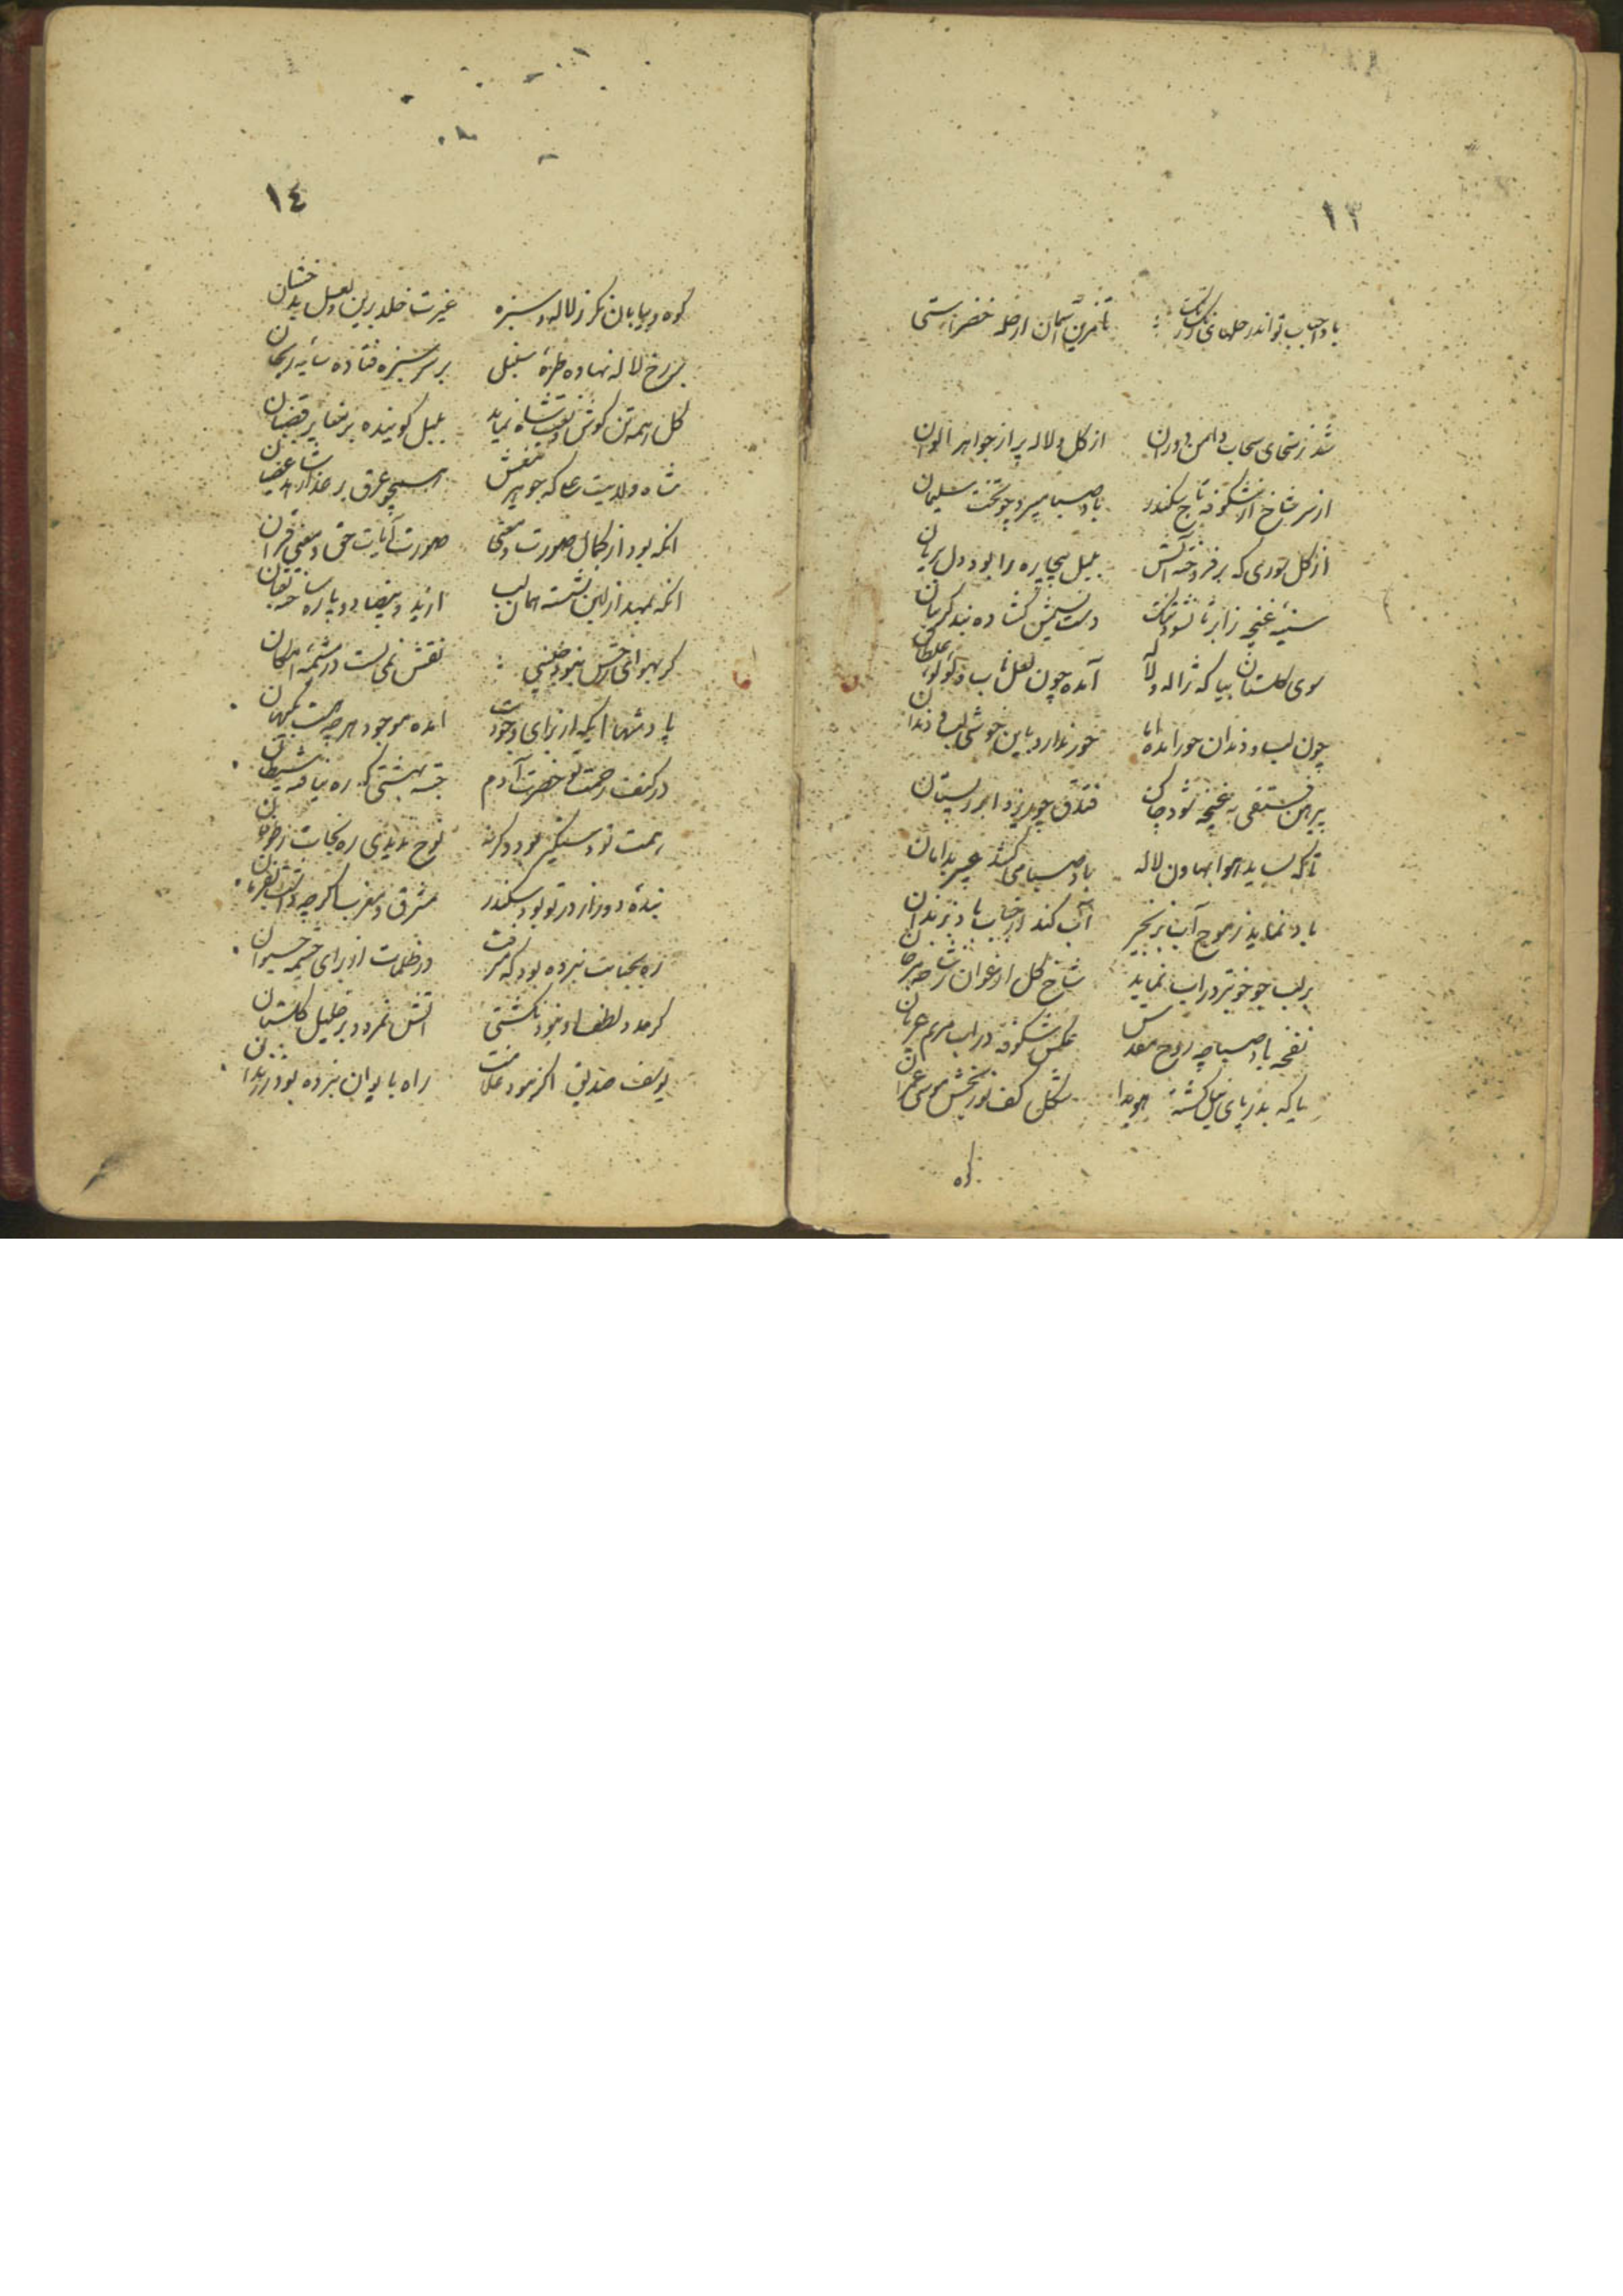 ١٣
باد احباب تو اندر حلهای رنگ رنگ تا تزیین آسمان از حله خضراستی
شد ز سخای سحاب دامن دوران از گل و لاله پر از جواهر الوان
از سر شاخ از شکوفه تاج سکندر باد صبا میبرد چو تخت سلیمان
از گل سوری که برفروخته آتش بلبل بیچاره را بود دل بریان
سینه غنچه ز ابر تا نشود دست نسیمش گشاده بند گریبان
سوی گلستان بیا که ژاله و لاله آمده چون لعل ناب و لؤلؤ غلطان
چون لب و دندان حور آمده اما حور ندارد باین خوشی لب و دندان
پیرهن فستقی به غنچه شود چاک فندق چو ریزد ابر ببستان
تا که بساید هوا بهاون لاله باد صبا می‌کشد عبیر بدامان
باد نماید ز موج آب بزنجیر آب کند از حباب باد بزندان
بر لب جو خوبتر در آب نماید شاخ گل ارغوان ز شاخه مرجان
نفحه باد صبا چه روح مقدس عکس شکوفه در آب مریم عریان
یا که بدریای نیل گشته هویدا شکل کف نوربخش موسی عمران
کوه
١٤
کوه و بیابان نگر ز لاله و سبزه غیرت خلد برین و لعل بدخشان
بر رخ لاله نهاده طره سنبل بر سر سبزه فتاده سایه ریحان
گل همه تن گوش و نعت شاه نماید بلبل گوینده بر نغایر قضبان
شاه ولایت علی که جوهر تیغش همچو عرق بر عذار شاهد
آنکه بود از کمال صورت و معنی صورت آیات حق و معنی قرآن
آنکه بمهد از لبن نشسته همان لب از ید و بیضا دو پاره ساخته ثعبان
گر بهوای رخش نبود جنینی نقش نمی‌بست در مشیمه امکان
پادشها ایکه از برای وجودت آمده موجود هر چه هست بکیهان
در کنف رحمت تو حضرت آدم جسته بهشتی که ره نیافته شیطان
همت تو دستگیر بود وگرنه نوح ندیدی ره نجات ز طوفان
بنده دو روز از در تو بود سکندر مشرق و مغرب اگرچه داشت بفرمان
ره بجنابت نبرده بود که میرفت در ظلمات از برای چشمه حیوان
گر مدد لطف او نبود نگشتی آتش نمرود بر خلیل گلستان
یوسف صدیق اگر نبود غلامت راه بایوان نبرده بود ز زندان